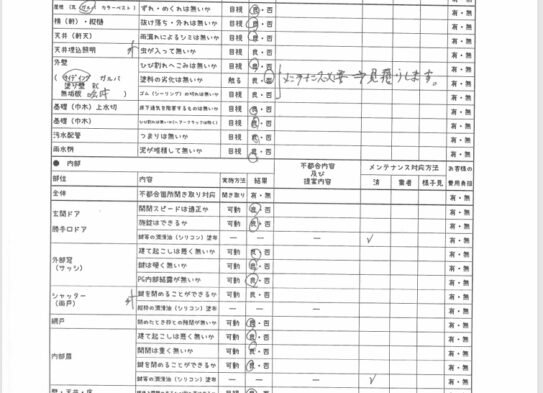 屋根 (瓦 ガルバ カラーベスト) ずれ・めくれは無いか 目視 良・否 有・無
樋(軒)・縦樋 抜け落ち・外れは無いか 目視 良・否 有・無
天井(軒天) 雨漏れによるシミは無いか 目視 良・否 有・無
天井埋込照明 虫が入って無いか 目視 良・否 有・無
外壁 ひび割れへこみは無いか 目視 良・否 有・無
(サイディング ガルバ 塗料の劣化は無いか 触る 良・否 有・無
塗り壁 RC ゴム(シーリング)の切れは無いか 目視 良・否 有・無
基礎(巾木)上水切 床下通気を阻害するものは無いか 目視 良・否 有・無
基礎(巾木) ひび割れは無いか(ヘアークラックは除く) 目視 良・否 有・無
汚水配管 つまりは無いか 目視 良・否 有・無
雨水桝 泥が堆積して無いか 目視 良・否 有・無
● 内部
部位 内容 実施方法 結果 不都合内容及び提案内容 メンテナンス対応方法 済 業者 様子見 お客様の費用負担
全体 不都合箇所聞き取り対応 聞き取り 有・無 有・無
玄関ドア 開閉スピードは適正か 可動 良・否 有・無
勝手口ドア 施錠はできるか 可動 良・否 有・無
鍵等の潤滑油(シリコン)塗布 ー ー ー ✓ 有・無
外部窓 建て起こしは悪く無いか 可動 良・否 有・無
(サッシ) 鍵は硬く無いか 可動 良・否 有・無
PG内部結露が無いか 可動 良・否 有・無
シャッター 鍵を閉めることができるか 可動 良・否 有・無
(雨戸) 縦枠の潤滑油(シリコン)塗布 ー ー ー 有・無
網戸 閉めたとき枠との隙間が無いか 可動 良・否 有・無
内部扉 建て起こしは悪く無いか 可動 良・否 有・無
開閉は重く無いか 可動 良・否 有・無
鍵を閉めることができるか 可動 良・否 有・無
鍵等の潤滑油(シリコン)塗布 ー ー ー ✓ 有・無
壁・天井・床